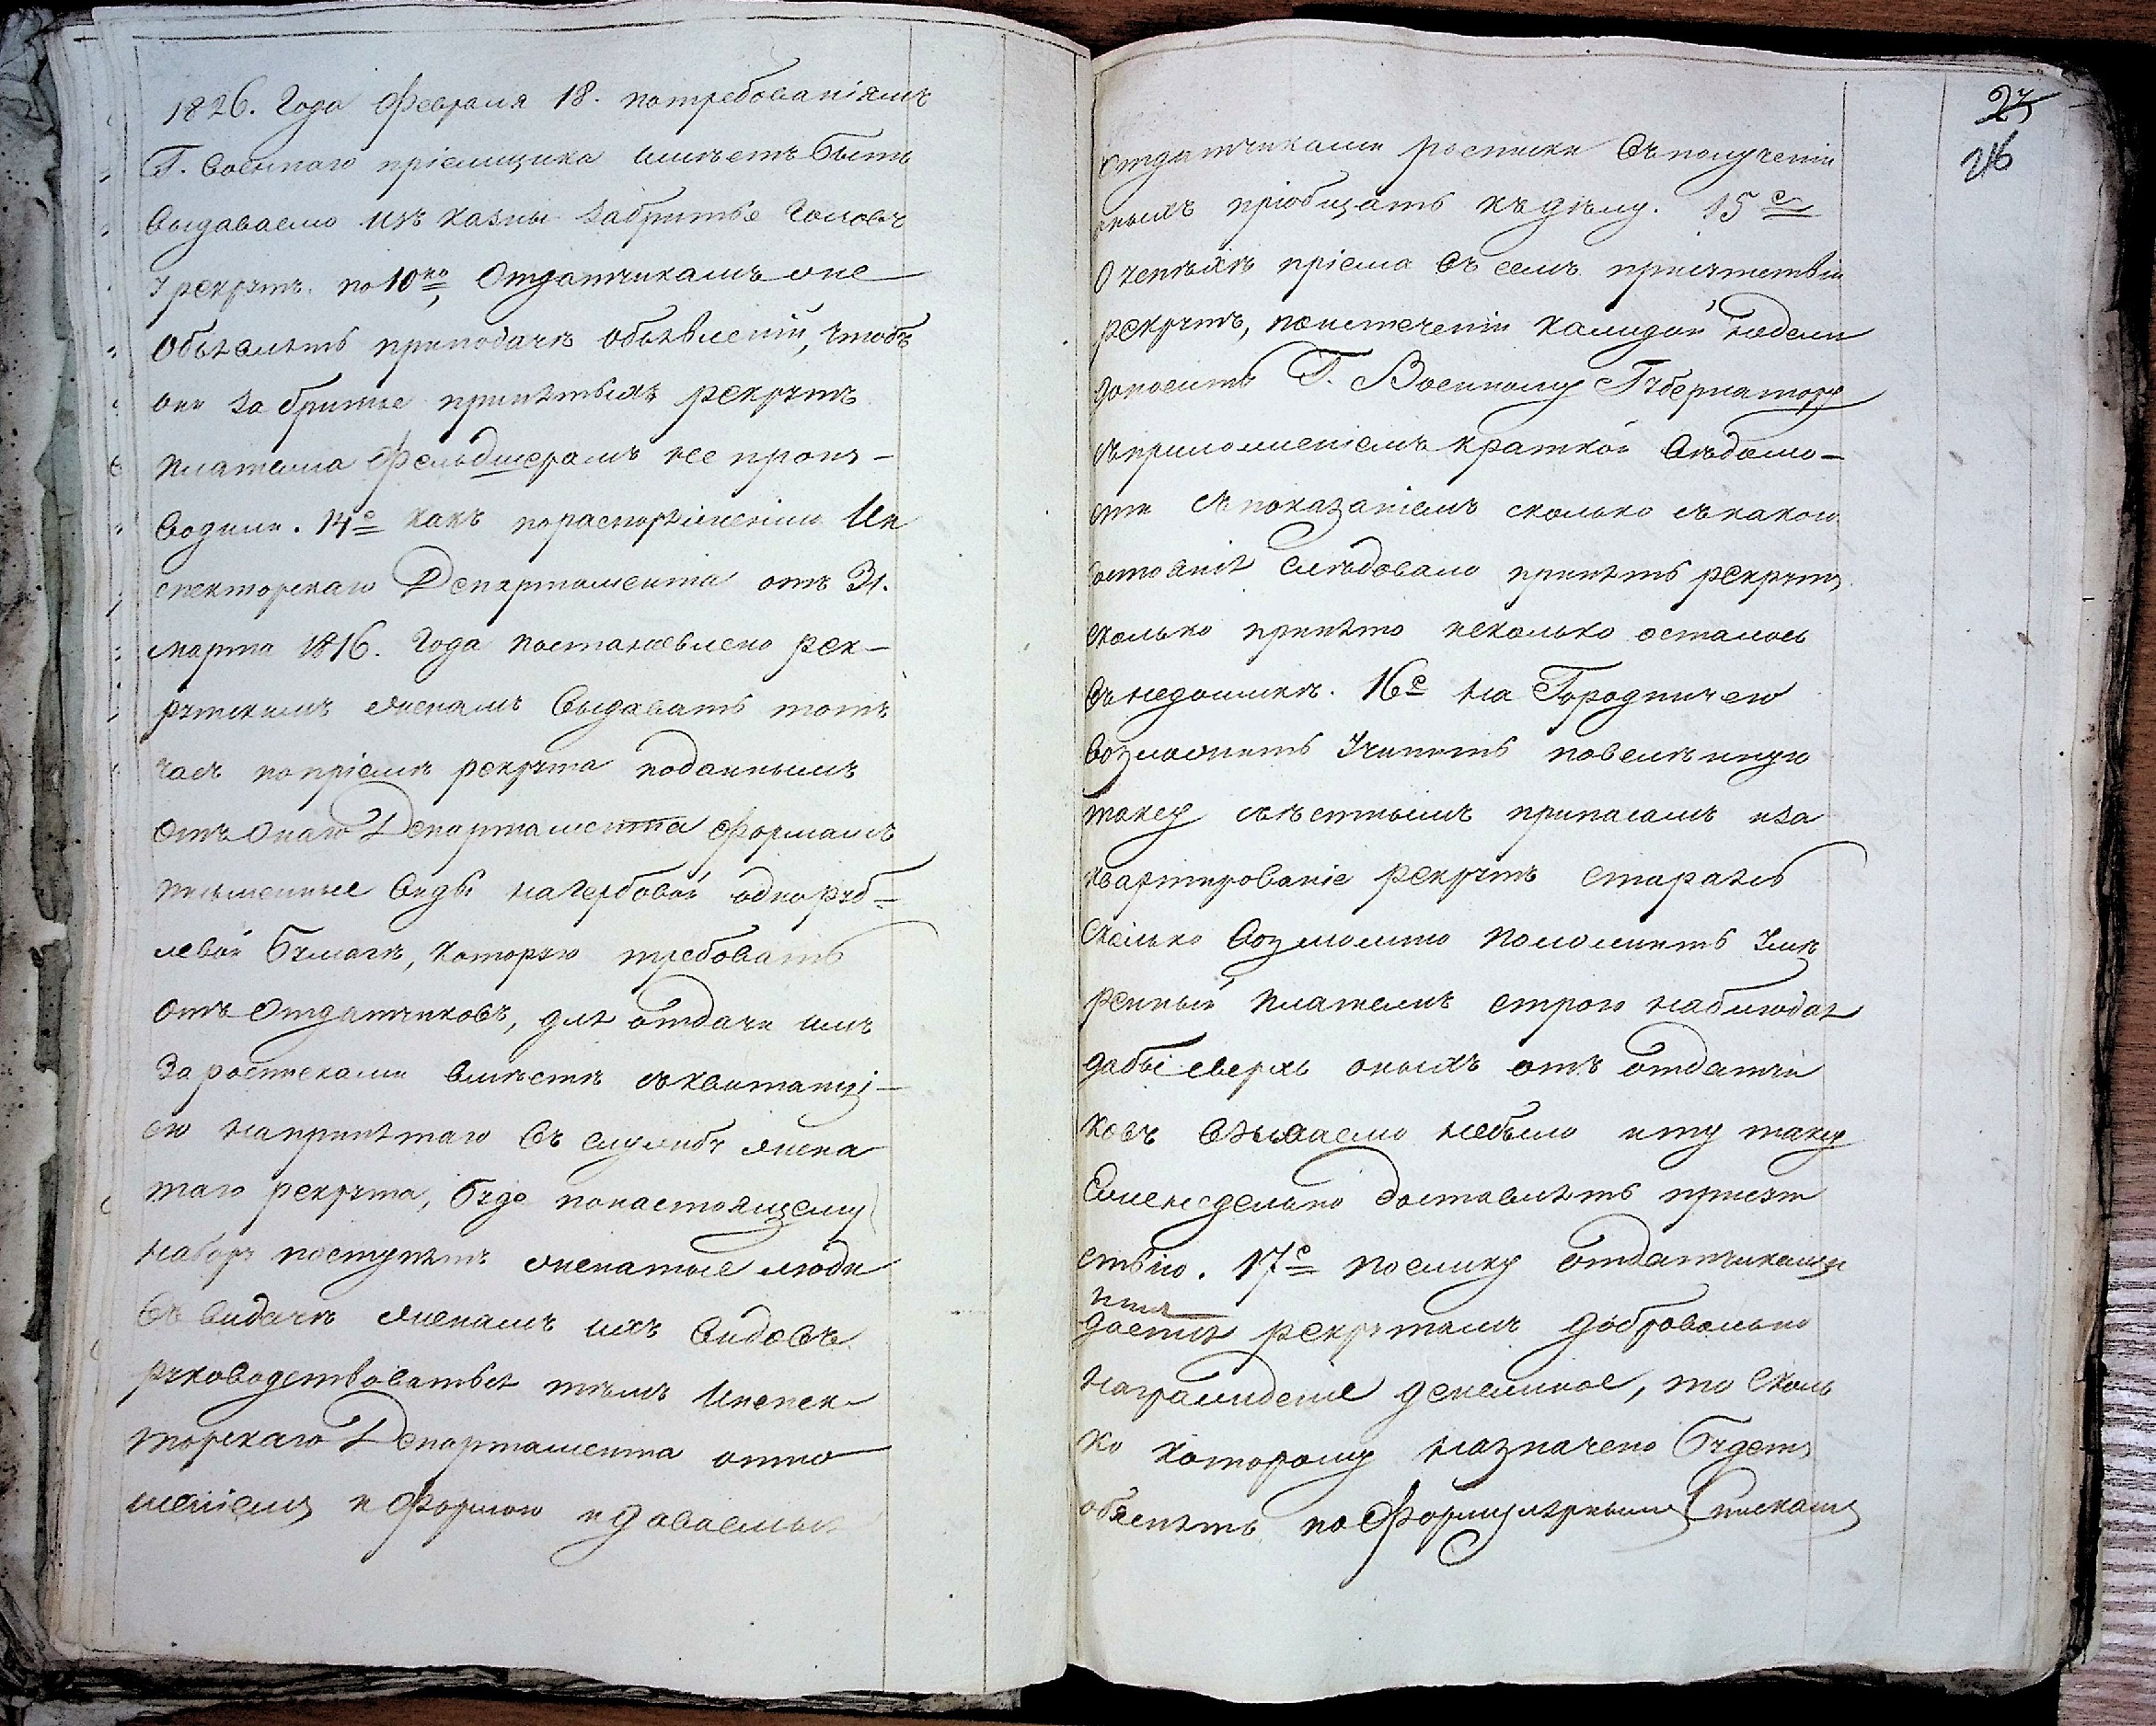 1826. Года Февраля 18. потребованіямъ
Г. военнаго пріемщика имѣетъ быть
выдаваемо изъ казны забритье головъ
у рекрутъ по 10ко, Отдатчикамъ оне
объявлять приподачѣ объявленій, чтобъ
они за бритье принятыхъ рекрутъ
платежа Фельдшерамъ не произ-
водили. 14е какъ пораспоряженію Ин
спекторскаго Департамента отъ 31.
марта 1816. Года постановлено рек-
рутскимъ женамъ выдавать тотъ
часъ попріемѣ рекрута поданнымъ
отъ онаго Департамента формамъ
письменные виды нагербовой однoруб-
левой бумагѣ, которую требовать
отъ Отдатчиковъ, для отдачи имъ
За росписками вмѣстѣ съквитанці-
ею напринятаго въ службу жена
таго рекрута, буде понастоящему
набору поступятъ женатые люди
Въ видачѣ женамъ ихъ видовъ
руководствоваться тѣмъ Инспек-
торскаго Департамента отно
шеніемъ и Формою идаваемыя
27
26
Отдатчиками росписки въполученіи
оныхъ пріобщать къдѣлу. 15е
О успѣхѣ пріема въ семъ присутствіи
рекрутъ, поистеченіи каждой недели
доносить Г. Военному Губернатору
съприложеніемъ краткой вѣдомо-
сти съпоказаніемъ сколько съкакого
состоянія слѣдовало принять рекрутъ
сколько принято исколько осталось
въ недоимкѣ. 16е На Городничего
возложить Учинить повсемѣстную
таксу съѣстнымъ припасамъ иза
квартированіе рекрутъ стараясь
сколько возможно положить умѣ
ренный платежъ строго наблюдая
дабы сверхъ оныхъ отъ отдатчи
ковъ взымаемо небыло иту таксу
Еженедельно доставлять присут
ствію. 17е поелику отдатчиками
дается рекрутамъ добровольно
награжденіе денежное, то сколь
ко которому назначено будетъ
объяснять поФормулярнымъ Спискамъ